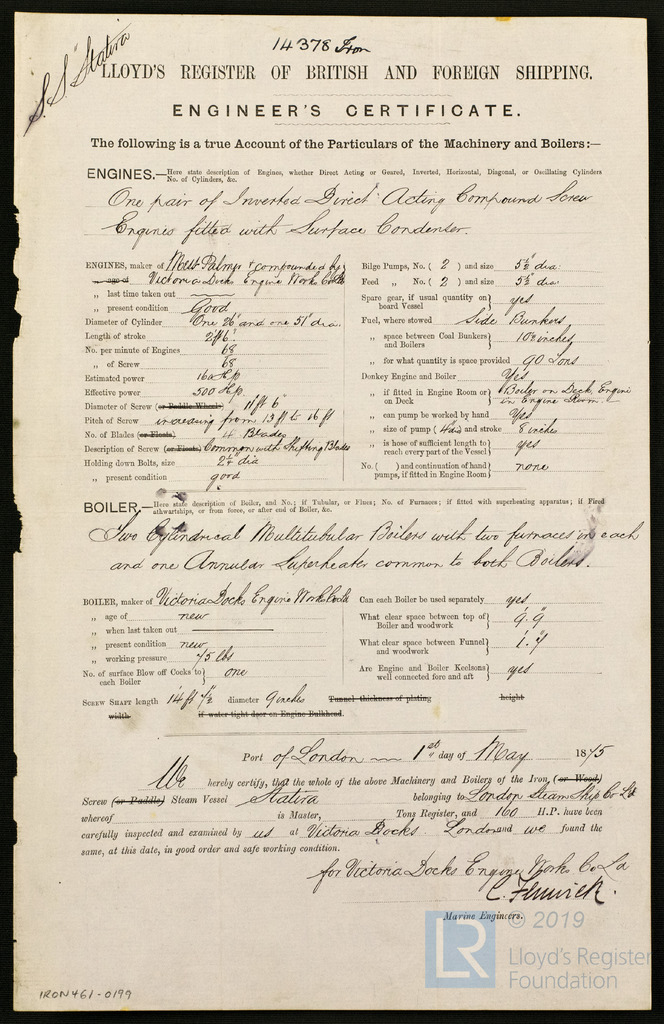 14378 Iron
S.S. "Statira
LLOYD'S REGISTER OF BRITISH AND FOREIGN SHIPPING.
ENGINEER'S CERTIFICATE.
The following is a true Account of the Particulars of the Machinery and Boilers:—
ENGINES.—Here state description of Engines, whether Direct Acting or Geared, Inverted, Horizontal, Diagonal, or Oscillating Cylinders
No. of Cylinders, &c.
One pair of Inverted Direct Acting Compound Screw
Engines fitted with Surface Condenser.
ENGINES, maker of Messrs Palmer & compounded by
„ age of Victoria Docks Engine Works Co Ld
„ last time taken out
„ present condition Good
Diameter of Cylinder One 26" and one 51" dia.
Length of stroke 2ft 6"
No. per minute of Engines 68
„ of Screw 68
Estimated power 160 H.p.
Effective power 500 H.p.
Diameter of Screw (or Paddle Wheel) 11ft 6
Pitch of Screw increasing from 13 ft to 16 ft
No. of Blades (or Floats) 4 Blades
Description of Screw (or Floats) Common with Shifting Blades
Holding down Bolts, size 2¼ dia
„ present condition good
Bilge Pumps, No. ( 2 ) and size 5½" dia:
Feed „ No. ( 2 ) and size 5½" dia
Spare gear, if usual quantity on board Vessel } yes
Fuel, where stowed Side Bunkers
„ space between Coal Bunkers and Boilers } 10 inches
„ for what quantity is space provided 90 Tons
Donkey Engine and Boiler Yes
„ if fitted in Engine Room or on Deck } Boiler on Deck, Engine in Engine Room.
„ can pump be worked by hand Yes
„ size of pump ( 4 dia ) and stroke 8 inches
„ is hose of sufficient length to reach every part of the Vessel } yes
No. ( ) and continuation of hand pumps, if fitted in Engine Room } none
BOILER.—Here state description of Boiler, and No.; if Tubular, or Flues; No. of Furnaces; if fitted with superheating apparatus; if Fired
athwartships, or from fore, or after end of Boiler, &c.
Two Cylindrical Multitubular Boilers with two furnaces in each
and one Annular Superheater common to both Boilers.
BOILER, maker of Victoria Docks Engine Works Co Ld
„ age of new
„ when last taken out
„ present condition new
„ working pressure 75 lbs
No. of surface Blow off Cocks to each Boiler } one
Can each Boiler be used separately yes
What clear space between top of Boiler and woodwork } 9.9"
What clear space between Funnel and woodwork }
Are Engine and Boiler Keelsons well connected fore and aft } yes
SCREW SHAFT length 14 ft 7½ diameter 9 inches Tunnel thickness of plating height
width if water tight door on Engine Bulkhead.
Port of London 1st day of May 1875
We hereby certify, that the whole of the above Machinery and Boilers of the Iron, (or Wood)
Screw (or Paddle) Steam Vessel Statira belonging to London Steam Ship Co Ld
whereof is Master, Tons Register, and 160 H.P. have been
carefully inspected and examined by us at Victoria Docks London and we found the
same, at this date, in good order and safe working condition.
for Victoria Docks Engine Works Co Ld
C. Fenwick.
Marine Engineers.
LR © 2019
Lloyd's Register
Foundation
IRON461-0199